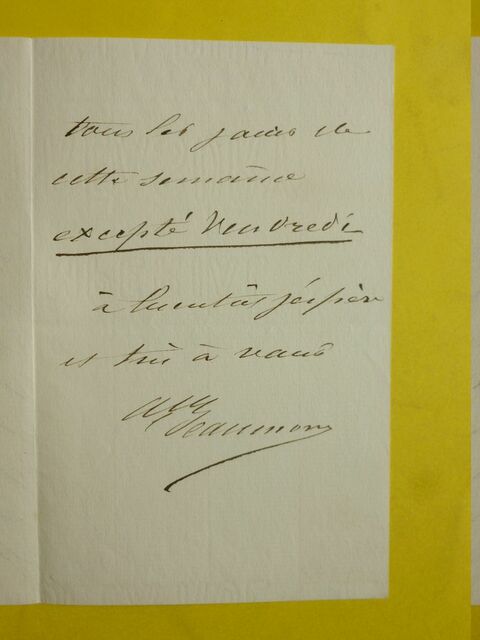 tous les jours de
cette semaine
excepté Vendredi
à bientôt j'éspère
et très à vous
Beaumont